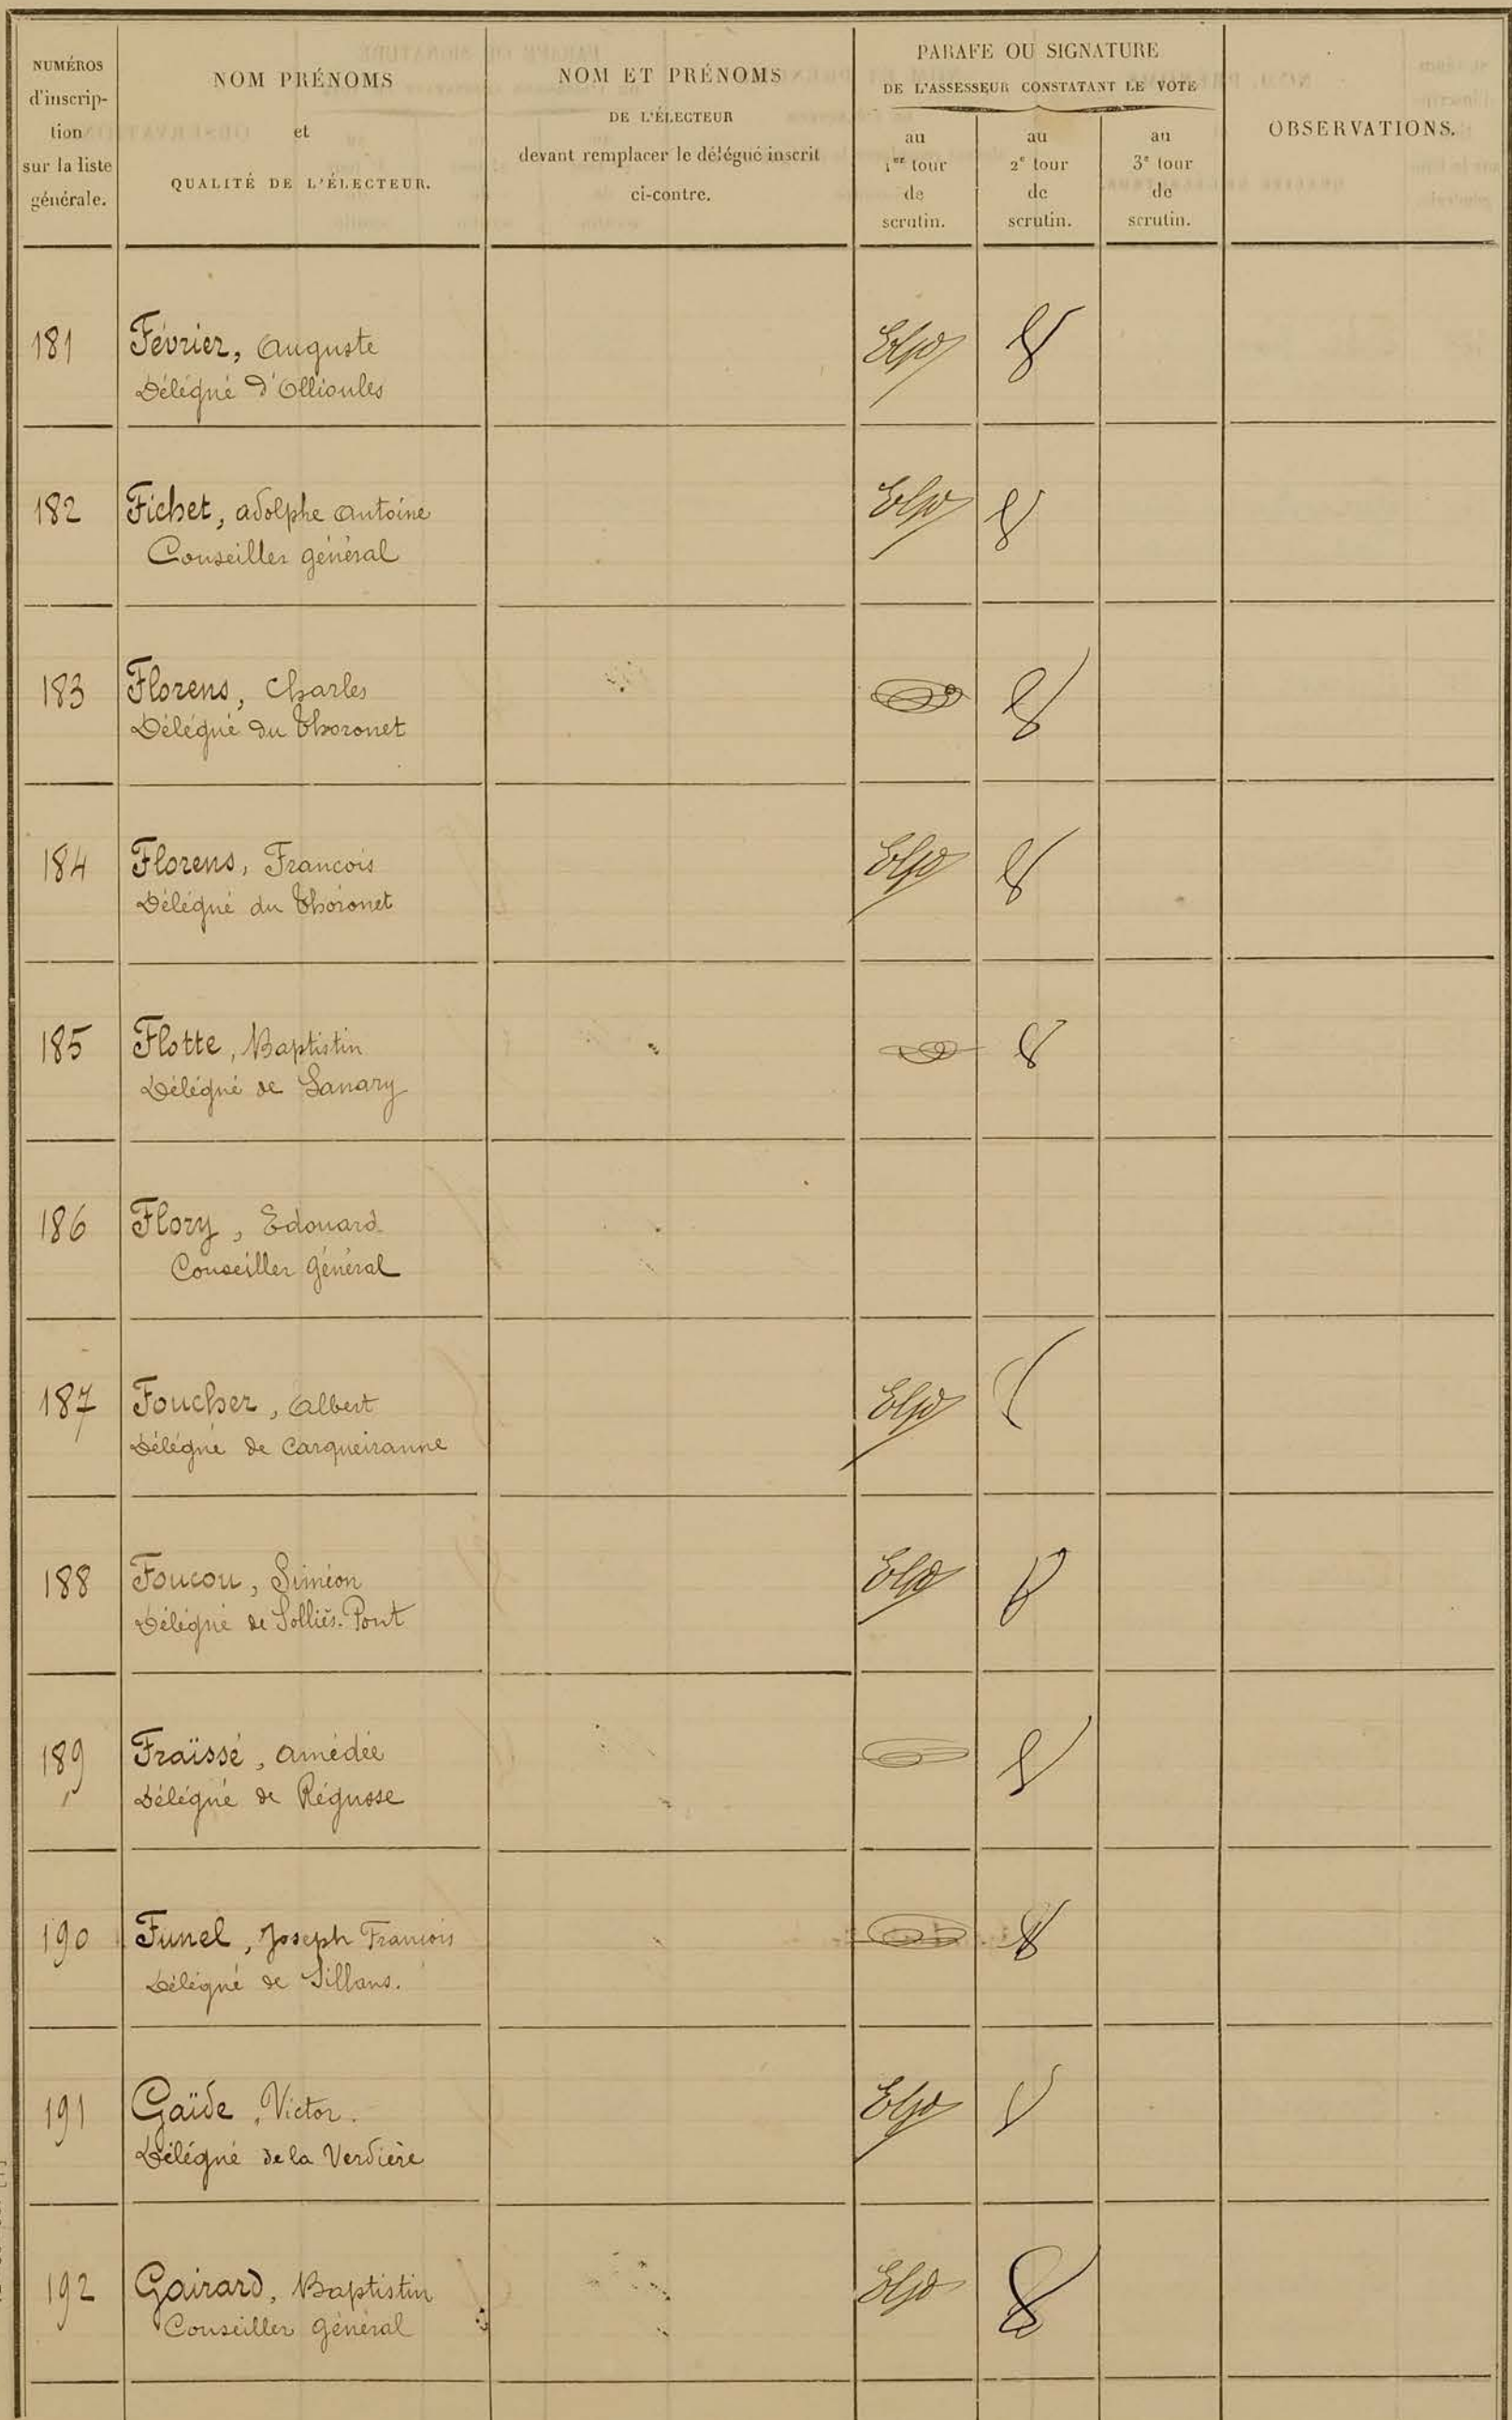 NUMÉROS
d'inscrip-
tion
sur la liste
générale.
NOM PRÉNOMS
et
QUALITÉ DE L'ÉLECTEUR.
NOM ET PRÉNOMS
DE L'ÉLECTEUR
devant remplacer le délégué inscrit
ci-contre.
PARAFE OU SIGNATURE
DE L'ASSESSEUR CONSTATANT LE VOTE
au
1er tour
de
scrutin.
au
2e tour
de
scrutin.
au
3e tour
de
scrutin.
OBSERVATIONS.
181 Février, Auguste
Délégué d'Ollioules
182 Fichet, adolphe antoine
Conseiller général
183 Florens, Charles
Délégué du Thoronet
184 Florens, François
Délégué du Thoronet
185 Flotte, Baptistin
Délégué de Sanary
186 Flory, Edouard
Conseiller Général
187 Foucher, Albert
Délégué de Carqueiranne
188 Foucou, Siméon
Délégué de Solliès-Pont
189 Fraïssé, amédée
Délégué de Régusse
190 Funel, Joseph François
Délégué de Sillans.
191 Gaïde, Victor.
Délégué de la Verdière
192 Gairard, Baptistin
Conseiller Général